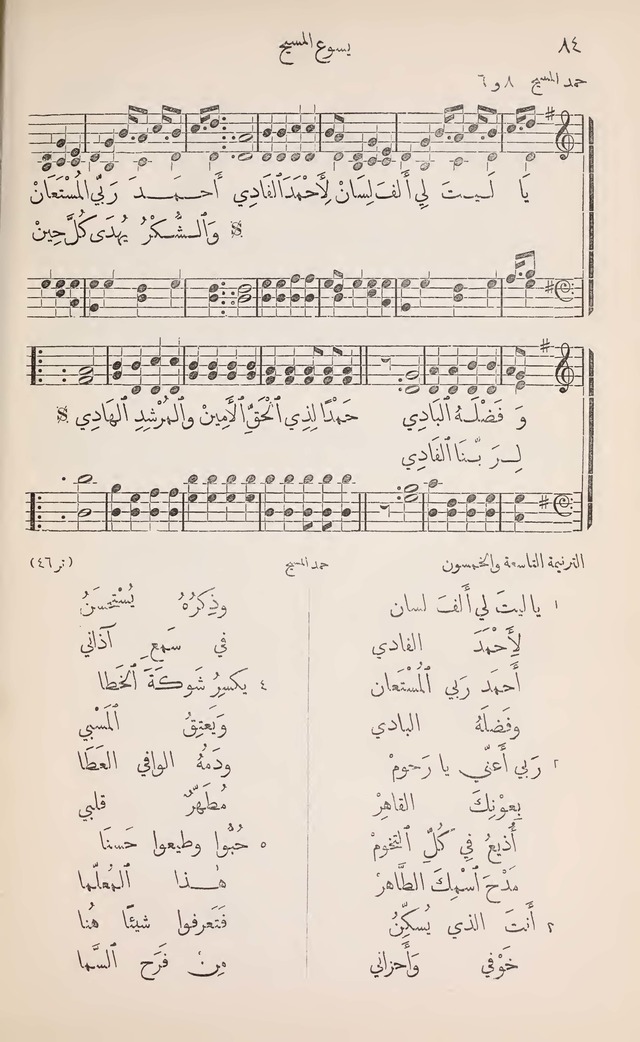 ٨٤
يسوع المسيح
حمد المسيح ٨ و ٦
يَا لَيتَ لِي أَلفَ لِسَانْ لِأَحْمَدَ ٱلفَادِي أَحمَدَ رَبِّي المُسْتَعَانْ
وَٱلشُّكْرُ يُهدَى كُلَّ حِينْ
وَ فَضْلَهُ البَادِي حَمْدًا لِذِي ٱلْحَقِّ ٱلأَمِينْ وَالمُرْشِدِ ٱلهَادِي
لِرَبِّنَا ٱلفَادِي
الترنيمة التاسعة والخمسون
حمد المسيح
(تر ٤٦)
١ يا ليتَ لي أَلفَ لسان
لِأَحْمَدَ الفادي
أَحمَد رَبي ٱلمُسْتَعَان
وفضلَهُ البادي
٢ رَبي أَعنّي يا رَحومْ
بِعونِكَ القاهِرْ
أُذيعُ في كُلِّ ٱلتخومْ
مَدْحَ ٱسْمِكَ الطَّاهرْ
٣ أَنتَ الذي يُسكِّنُ
خَوْفي وَأَحزاني
وذِكرُهُ يُسْتَحْسَنُ
في سَمعِ آذاني
٤ يكسِرُ شَوكَةَ ٱلخَطَا
وَيَعتِقُ ٱلمَسْبي
ودَمُهُ الوافي العَطَا
مُطَهِّرٌ قلبي
٥ حُبُّوا وطيعوا حَسَنَا
هٰذا ٱلمُعلِّما
فَتَعرفوا شيئًا هُنا
مِنْ فَرَحِ ٱلسَّما